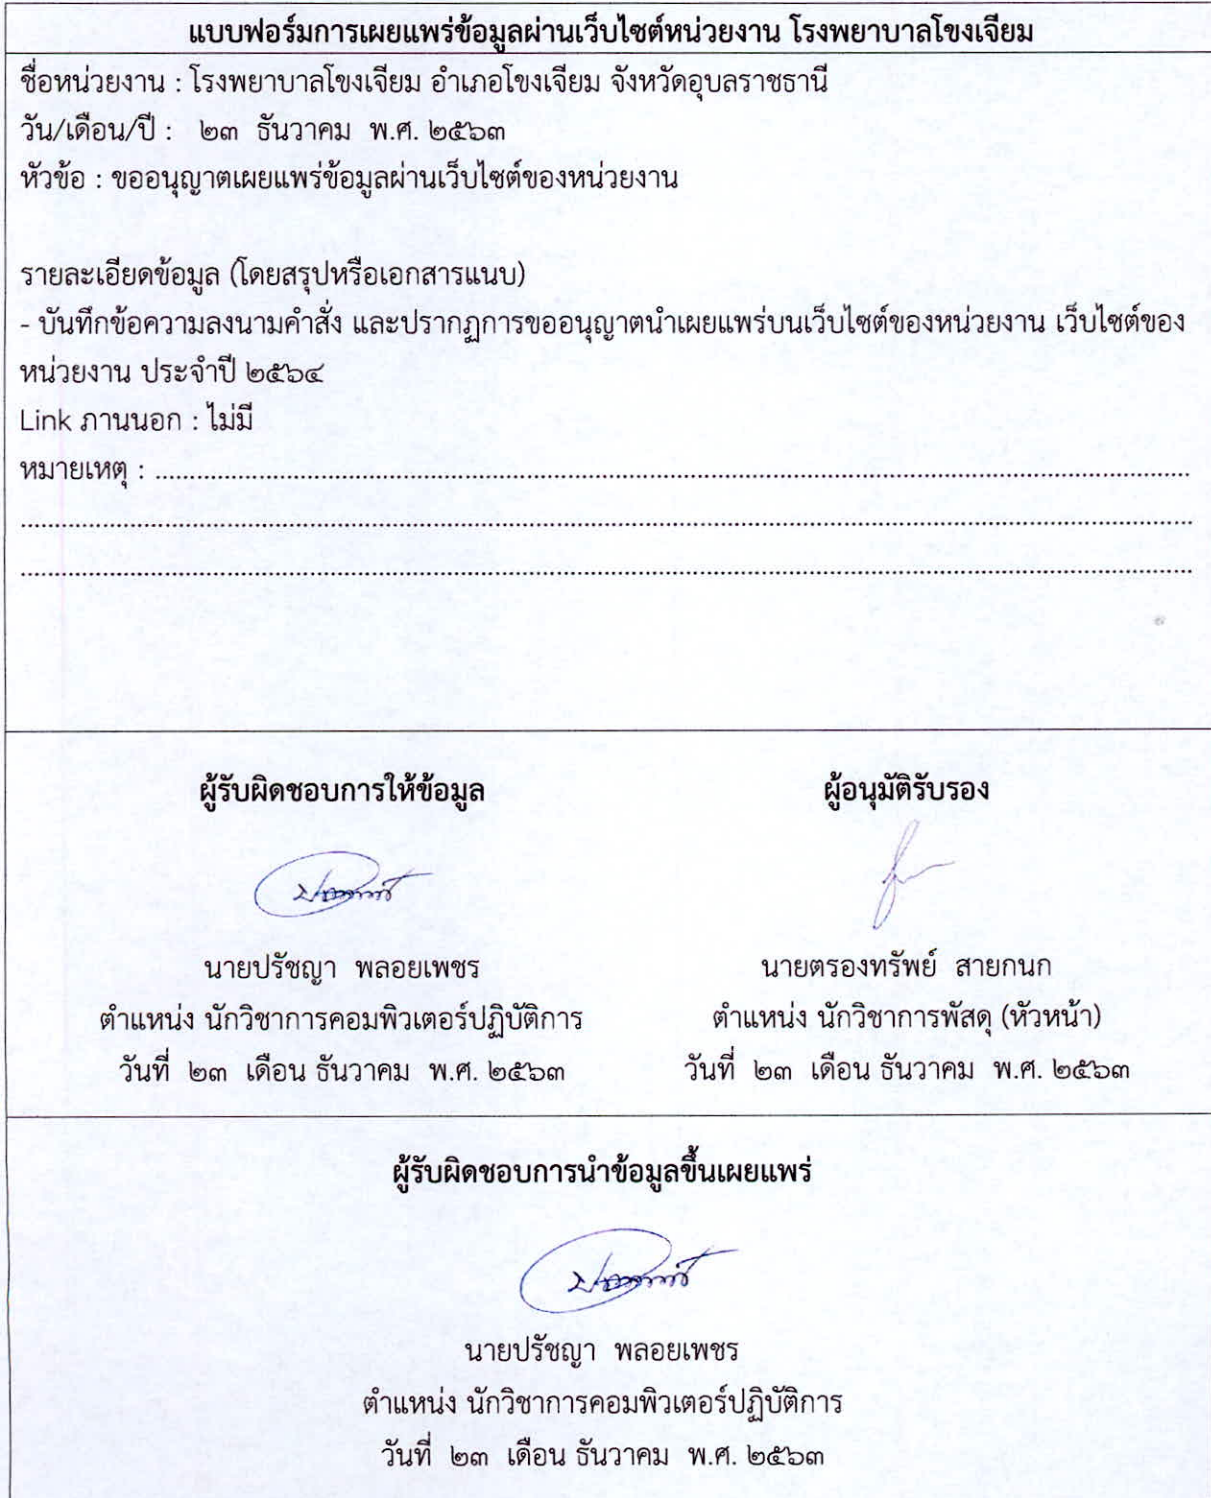 แบบฟอร์มการเผยแพร่ข้อมูลผ่านเว็บไซต์หน่วยงาน โรงพยาบาลโขงเจียม
ชื่อหน่วยงาน : โรงพยาบาลโขงเจียม อำเภอโขงเจียม จังหวัดอุบลราชธานี
วัน/เดือน/ปี : ๒๓ ธันวาคม พ.ศ. ๒๕๖๓
หัวข้อ : ขออนุญาตเผยแพร่ข้อมูลผ่านเว็บไซต์ของหน่วยงาน
รายละเอียดข้อมูล (โดยสรุปหรือเอกสารแนบ)
- บันทึกข้อความลงนามคำสั่ง และปรากฏการขออนุญาตนำเผยแพร่บนเว็บไซต์ของหน่วยงาน เว็บไซต์ของ
หน่วยงาน ประจำปี ๒๕๖๔
Link ภานนอก : ไม่มี
หมายเหตุ :
ผู้รับผิดชอบการให้ข้อมูล
นายปรัชญา พลอยเพชร
ตำแหน่ง นักวิชาการคอมพิวเตอร์ปฏิบัติการ
วันที่ ๒๓ เดือน ธันวาคม พ.ศ. ๒๕๖๓
ผู้อนุมัติรับรอง
นายตรองทรัพย์ สายกนก
ตำแหน่ง นักวิชาการพัสดุ (หัวหน้า)
วันที่ ๒๓ เดือน ธันวาคม พ.ศ. ๒๕๖๓
ผู้รับผิดชอบการนำข้อมูลขึ้นเผยแพร่
นายปรัชญา พลอยเพชร
ตำแหน่ง นักวิชาการคอมพิวเตอร์ปฏิบัติการ
วันที่ ๒๓ เดือน ธันวาคม พ.ศ. ๒๕๖๓